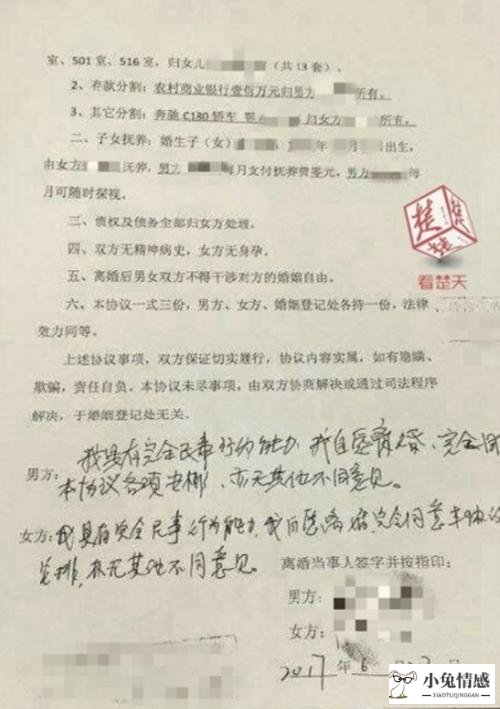 室、501 室、516 室，归女儿（共 13 套）。
2、存款分割：农村商业银行壹佰万元归男方所有。
3、其它分割：奔驰 C180 轿车 鄂归女方所有。
二、子女抚养：婚生子（女）年月日出生，
由女方抚养，男方每月支付抚养费壹元，男方每
月可随时探视。
三、债权及债务全部归女方处理。
四、双方无精神病史，女方无身孕。
五、离婚后男女双方不得干涉对方的婚姻自由。
六、本协议一式三份，男方、女方、婚姻登记处各持一份，法律
效力同等。
上述协议事项，双方保证切实履行，协议内容实属，如有隐瞒、
欺骗，责任自负。本协议未尽事项，由双方协商解决或通过司法程序
解决，于婚姻登记处无关。
男方：我具有完全民事行为能力，我自愿离婚、完全同
本协议各项安排，亦无其他不同意见。
女方：我具有完全民事行为能力，我自愿离婚，完全同意本协议
安排，亦无其他不同意见。
离婚当事人签字并按指印：
男方：
女方：
2017 年 6
楚
看楚天
小兔情感
XIAOTUQINGGAN